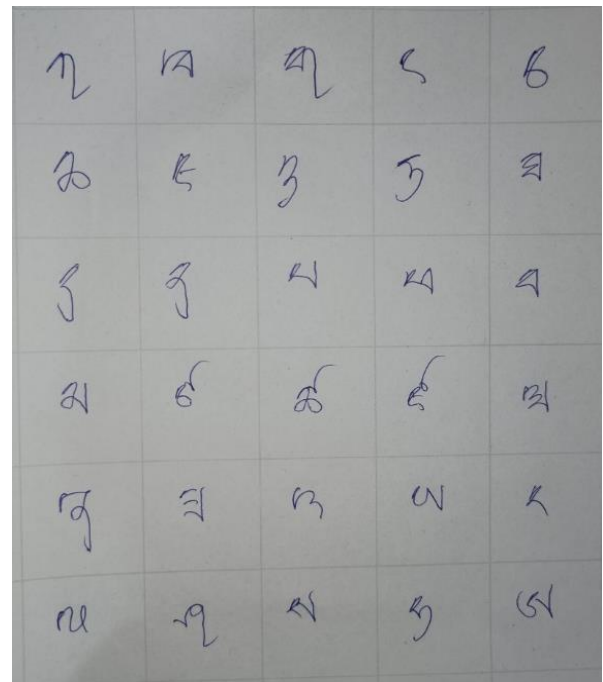 ཀ ཁ ག ང ཅ
ཆ ཇ ཉ ཏ ཐ
ད ན པ ཕ བ
མ ཙ ཚ ཛ ཝ
ཞ ཟ འ ཡ ར
ལ ཤ ས ཧ ཨ